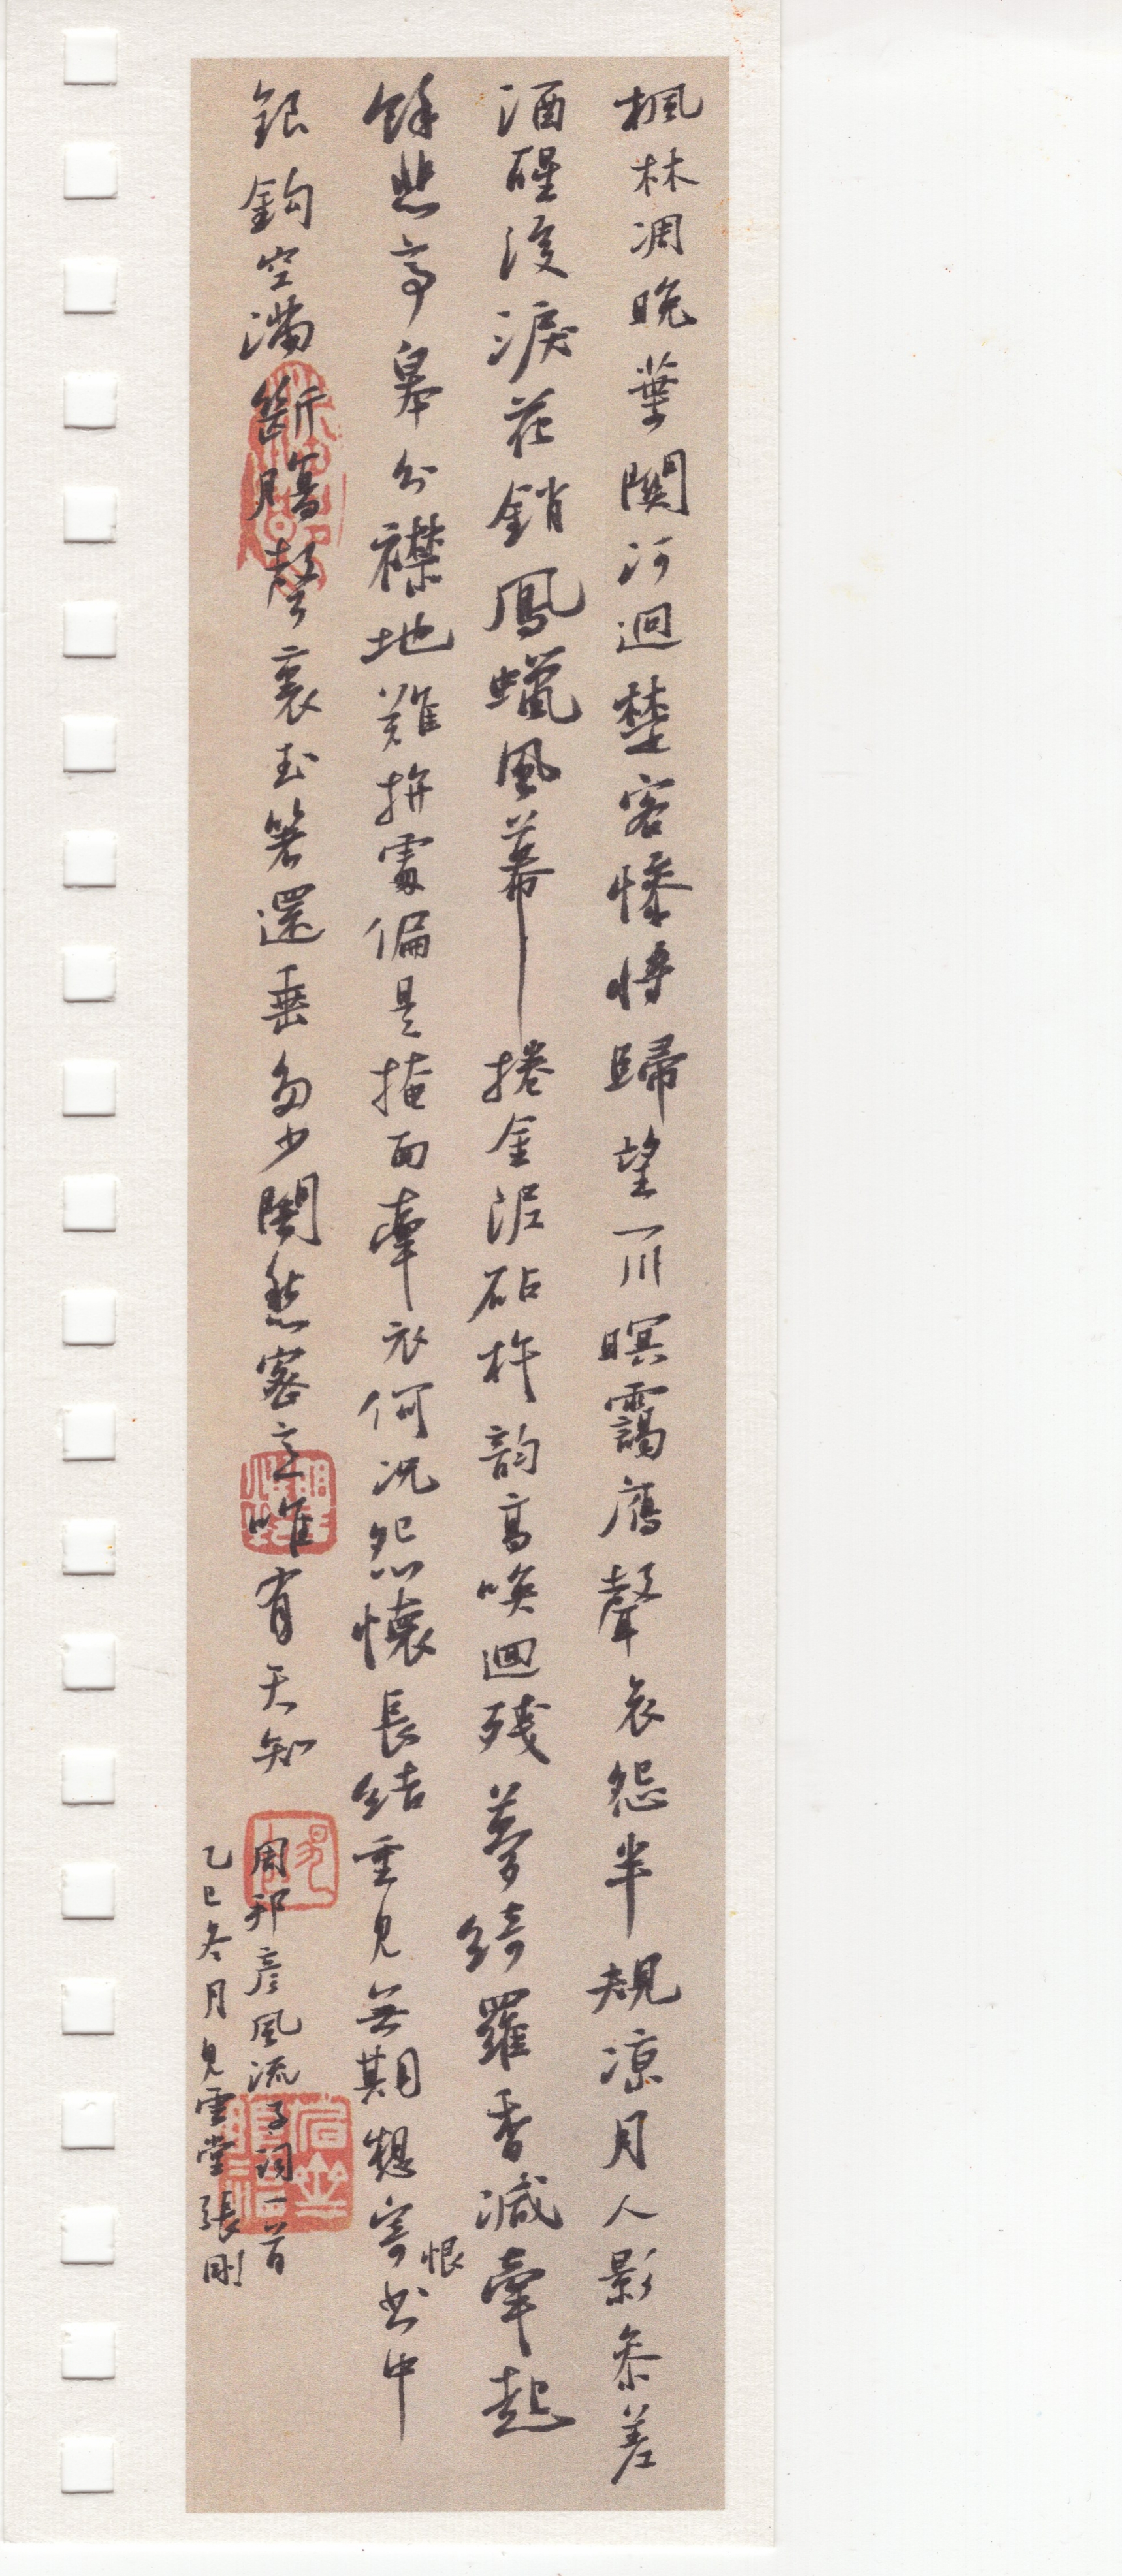 楓林凋晚葉關河迥楚客慘將歸望一川暝靄鴈聲哀怨半規涼月人影參差
酒醒後淚花銷鳳蠟風幕捲金泥砧杵韵高喚迴殘夢綺羅香減牽起
餘悲亭皋分襟地難拚處偏是掩面牽衣何況怨懷長結重見無期想寄恨書中
銀鉤空滿斷腸聲裏玉箸還垂多少闇愁密意唯有天知
周邦彥風流子詞一首
乙巳冬月見雲堂張剛